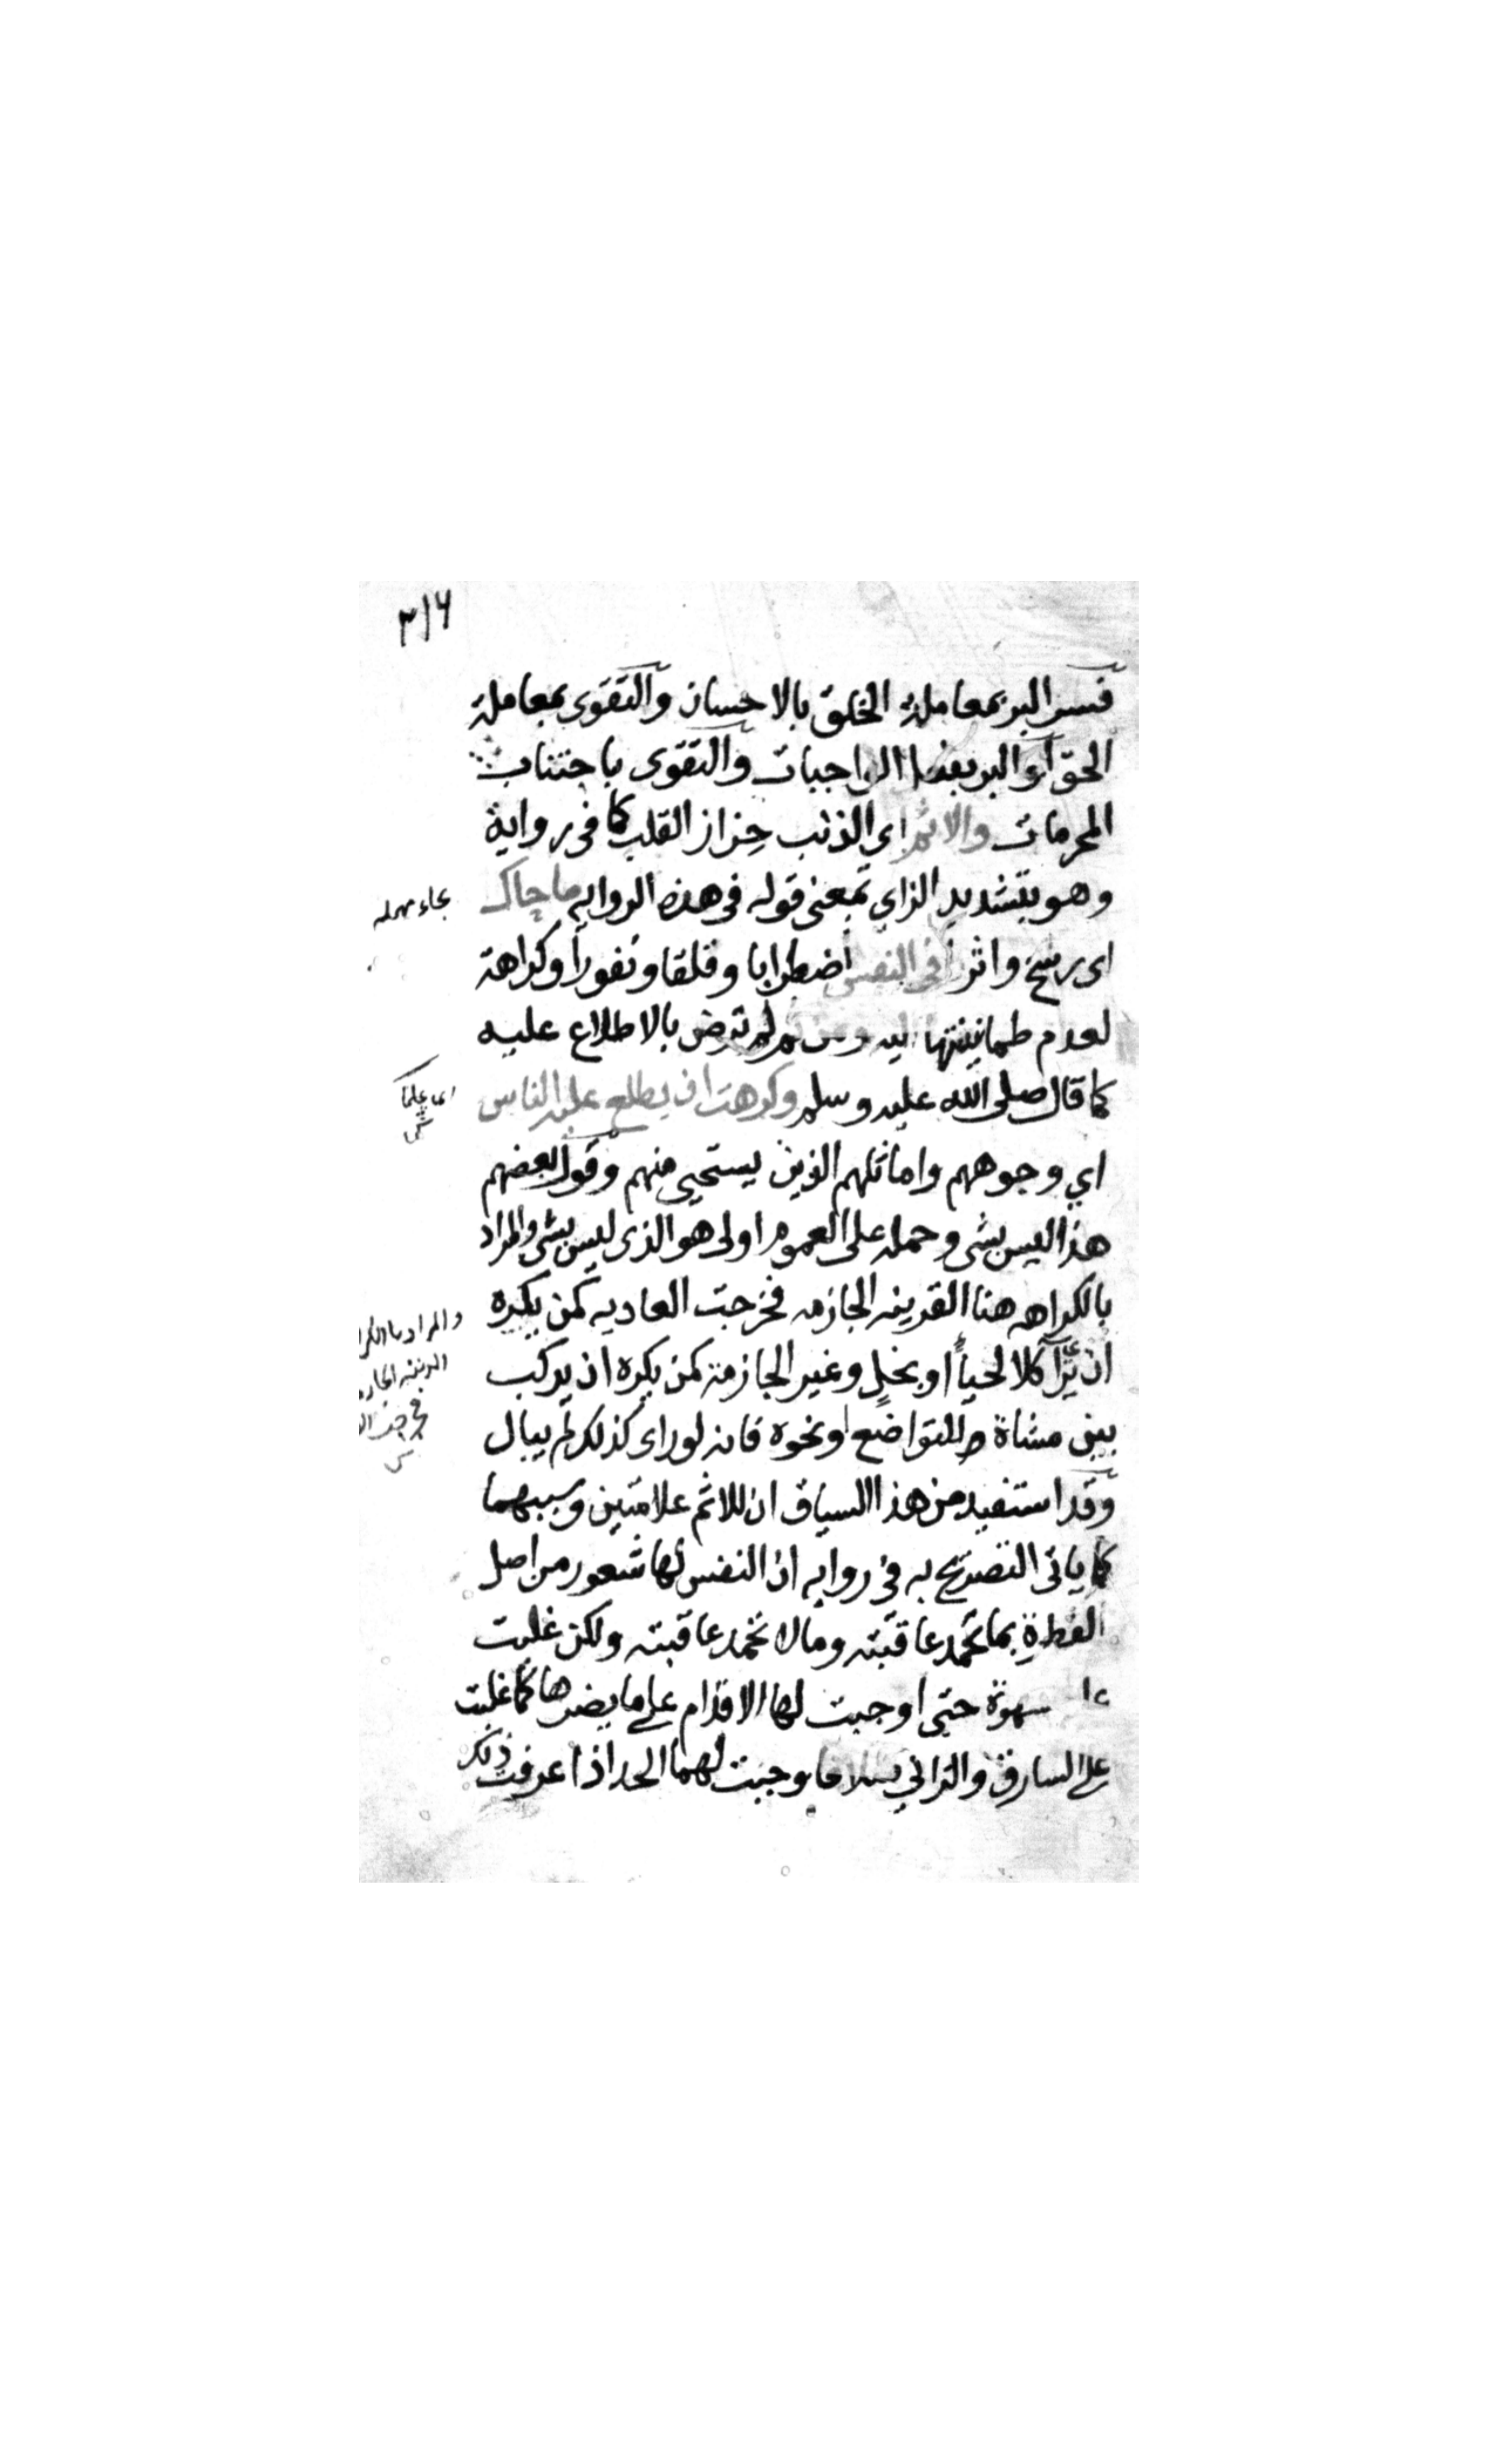 ٣١٦
فسر البر بمعاملة الخلق بالاحسان والتقوى بمعاملة
الحق او البر بفعل الواجبات والتقوى باجتناب
المحرمات والاثم اي الذنب حزاز القلب كما في رواية
وهو بتشديد الزاي بمعنى قوله في هذه الروايه ما حاك
بحاء مهمله
اى رسخ واثر في النفس اضطرابا وقلقا ونفورا وكراهة
لعدم طمانينتها اليه ومن ثم لم ترض بالاطلاع عليه
كما قال صلى الله عليه وسلم وكرهت ان يطلع عليه الناس
اي وجوههم واماثلهم الذين يستحيى منهم وقول بعضهم
هذا ليس بشى وحمله على العموم اولى هو الذى ليس بشى والمراد
بالكراهه هنا القدينه الجازمه فخرجت العاديه كمن يكره
والمراد بالكرا
ان يرآ آكلا لحياءً او بخلٍ وغير الجازمة كمن يكره ان يركب
بين مشاة للتواضع او نحوه فانه لوراى كذلك لم يبال
وقد استفيد من هذا السياق ان للاثم علامتين وسببهما
كما ياتى التصريح به في روايه ان النفس لها شعور من اصل
الفطرةِ بما تحمد عاقبته ومالا تحمد عاقبته ولكن غلبت
شهوة حتى اوجبت لها الاقدام على ما يضرها كما غلبت
على السارق والزاني فاوجبت لهما الحد اذا عرفت ذلك